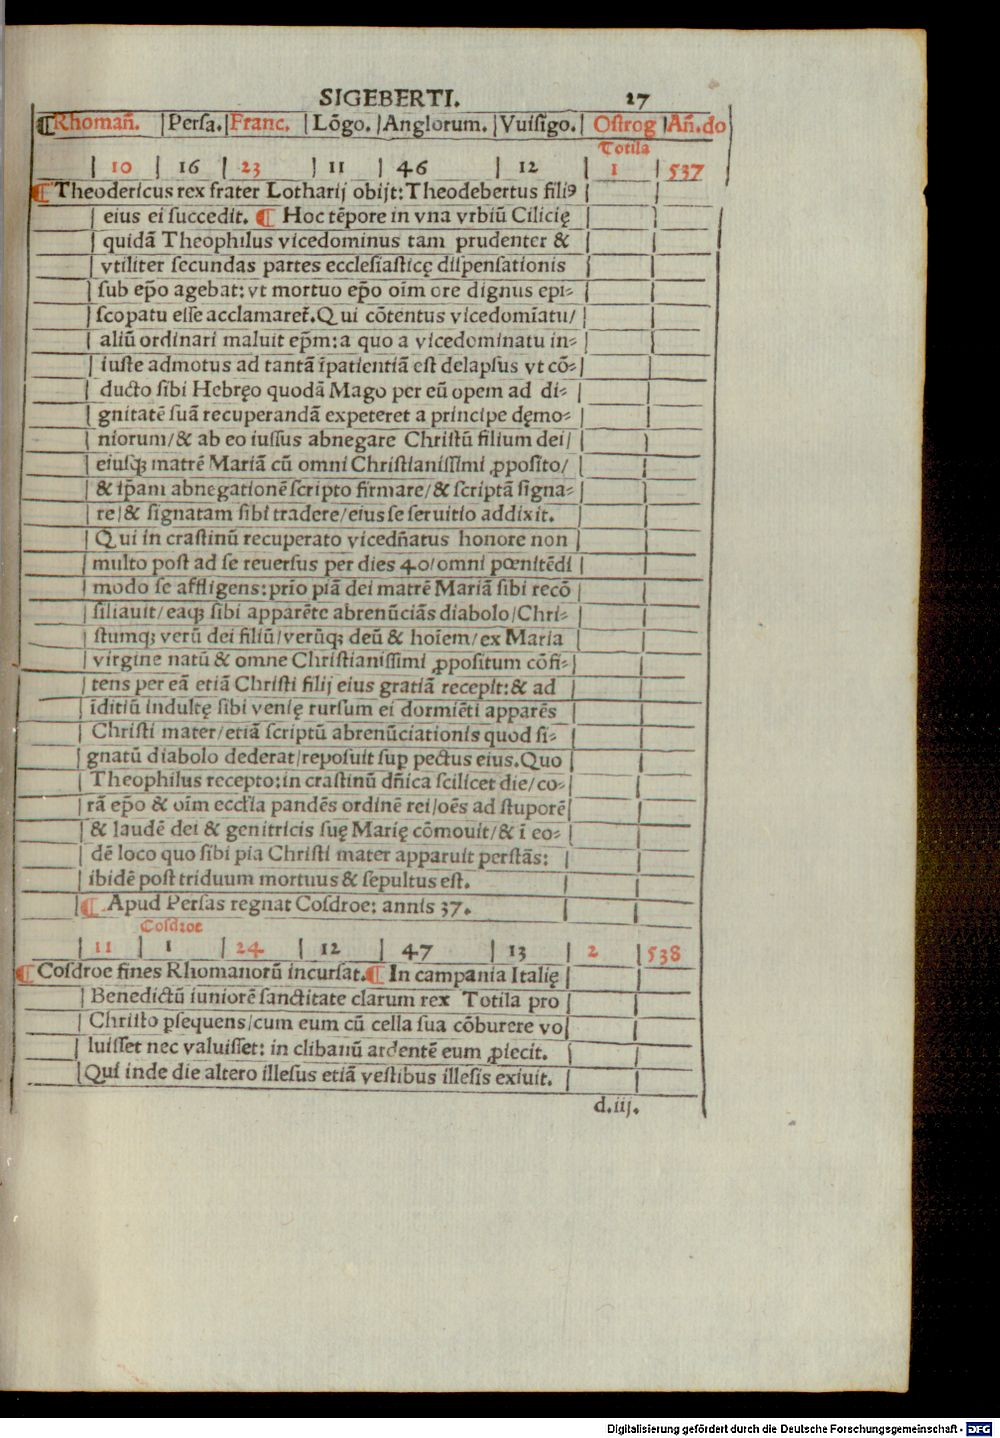 SIGEBERTI. 27
¶Rhomañ. |Persa.|Franc. |Lõgo.|Anglorum.|Vuisigo.| Ostrog |Añ.do
Totila
| 10 | 16 | 23 | 11 | 46 | 12 | 1 | 537
¶Theodericus rex frater Lotharij obijt:Theodebertus filiꝰ
eius ei succedit. ¶ Hoc tẽpore in vna vrbiũ Cilicię
quidã Theophilus vicedominus tam prudenter &
vtiliter secundas partes ecclesiasticę dispensationis
sub ep̃o agebat:vt mortuo ep̃o oĩm ore dignus epi-
scopatu esse acclamaret̃.Qui cõtentus vicedomĩatu/
aliũ ordinari maluit ep̃m:a quo a vicedominatu in-
iuste admotus ad tantã ĩpatientiã est delapsus vt cõ-
ducto sibi Hebręo quodã Mago per eũ opem ad di-
gnitatẽ suã recuperandã expeteret a principe dęmo-
niorum/& ab eo iussus abnegare Christũ filium dei/
eiusqꝫ matrẽ Mariã cũ omni Christianissimi ꝓposito/
& ip̃am abnegationẽ scripto firmare/& scriptã signa-
re/& signatam sibi tradere/eius se seruitio addixit.
Qui in crastinũ recuperato vicedñatus honore non
multo post ad se reuersus per dies 40/omni pœnitẽdi
modo se affligens:prĩo piã dei matrẽ Mariã sibi recõ
siliauit/eaqꝫ sibi apparẽte abrenũciãs diabolo/Chri-
stumqꝫ verũ dei filiũ/verũqꝫ deũ & hoĩem/ex Maria
virgine natũ & omne Christianissimi ꝓpositum cõfi-
tens per eã etiã Christi filij eius gratiã recepit:& ad
ĩditiũ indultę sibi venię rursum ei dormiẽti apparẽs
Christi mater/etiã scriptũ abrenũciationis quod si-
gnatũ diabolo dederat/reposuit sup pectus eius.Quo
Theophilus recepto:in crastinũ dñica scilicet die/co-
rã ep̃o & oĩm eccl̃ia pandẽs ordinẽ rei/oẽs ad stuporẽ
& laudẽ dei & genitricis suę Marię cõmouit/& ĩ eo-
dẽ loco quo sibi pia Christi mater apparuit perstãs:
ibidẽ post triduum mortuus & sepultus est.
¶.Apud Persas regnat Cosdroe: annis 37.
Cosdroe
| 11 | 1 | 24 | 12 | 47 | 13 | 2 | 538
¶Cosdroe fines Rhomanorũ incursat.¶ In campania Italię
Benedictũ iuniorẽ sanctitate clarum rex Totila pro
Christo ꝑsequens/cum eum cũ cella sua cõburere vo
luisset nec valuisset: in clibanũ ardentẽ eum ꝓiecit.
Qui inde die altero illesus etiã vestibus illesis exiuit.
d.iij.
Digitalisierung gefördert durch die Deutsche Forschungsgemeinschaft - DFG